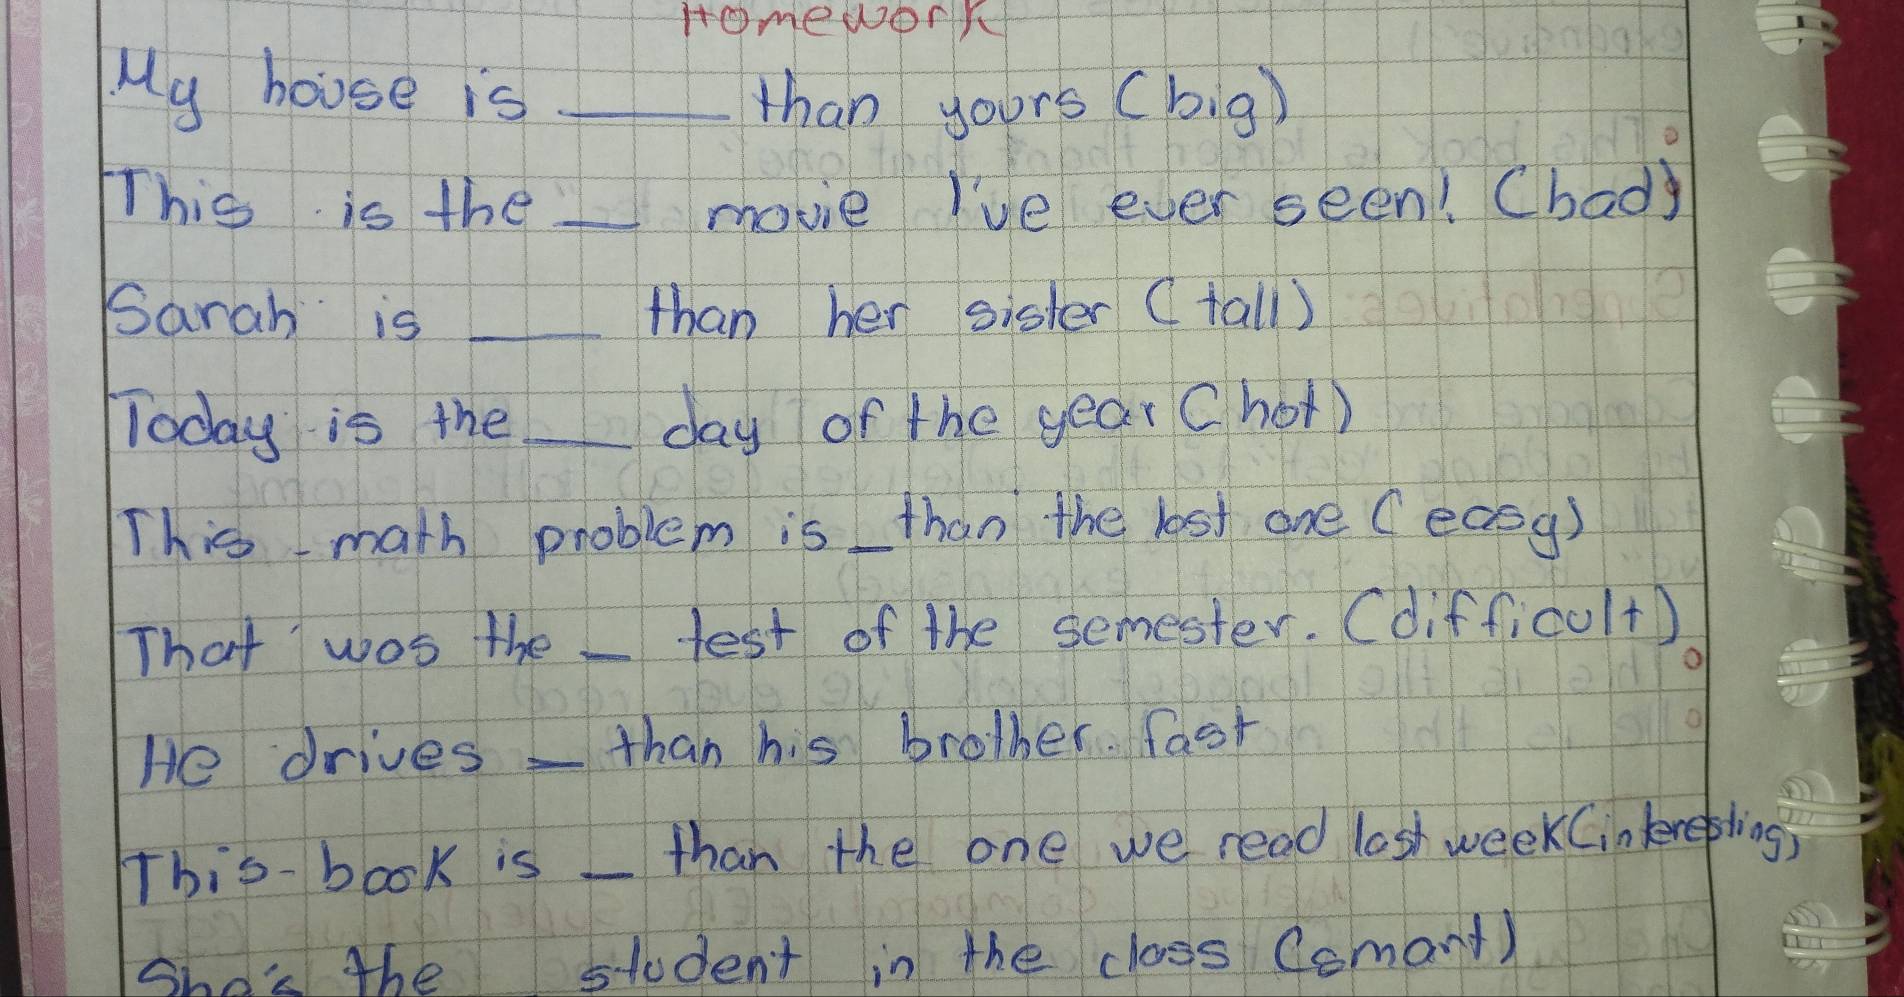 Homework
My house is ____ than yours (big)
This is the __ movie I've ever seen! (bad)
Sarah is ____ than her sister (tall)
Today is the ___ day of the year (hot)
This math problem is _ than the last one (easy)
That was the _ test of the semester. (difficult)
He drives _ than his brother. fast
This book is _ than the one we read last week (interesting)
She's the _ student in the class (smart)